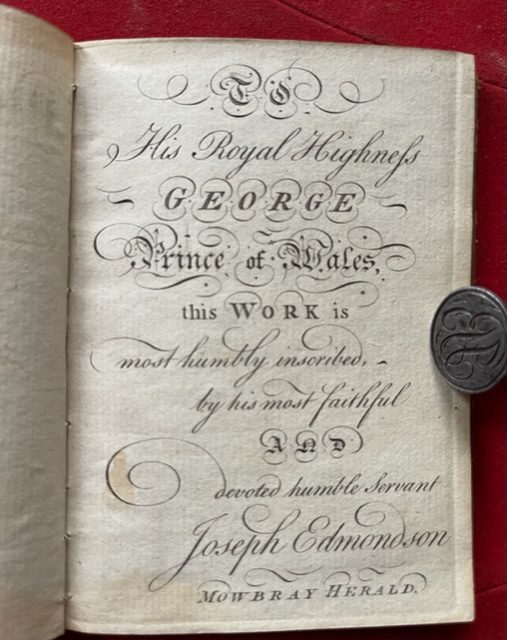 To
His Royal Highneſs
GEORGE
Prince of Wales,
this WORK is
most humbly inscribed,
by his most faithful
AND
devoted humble Servant
Joseph Edmondson
MOWBRAY HERALD.